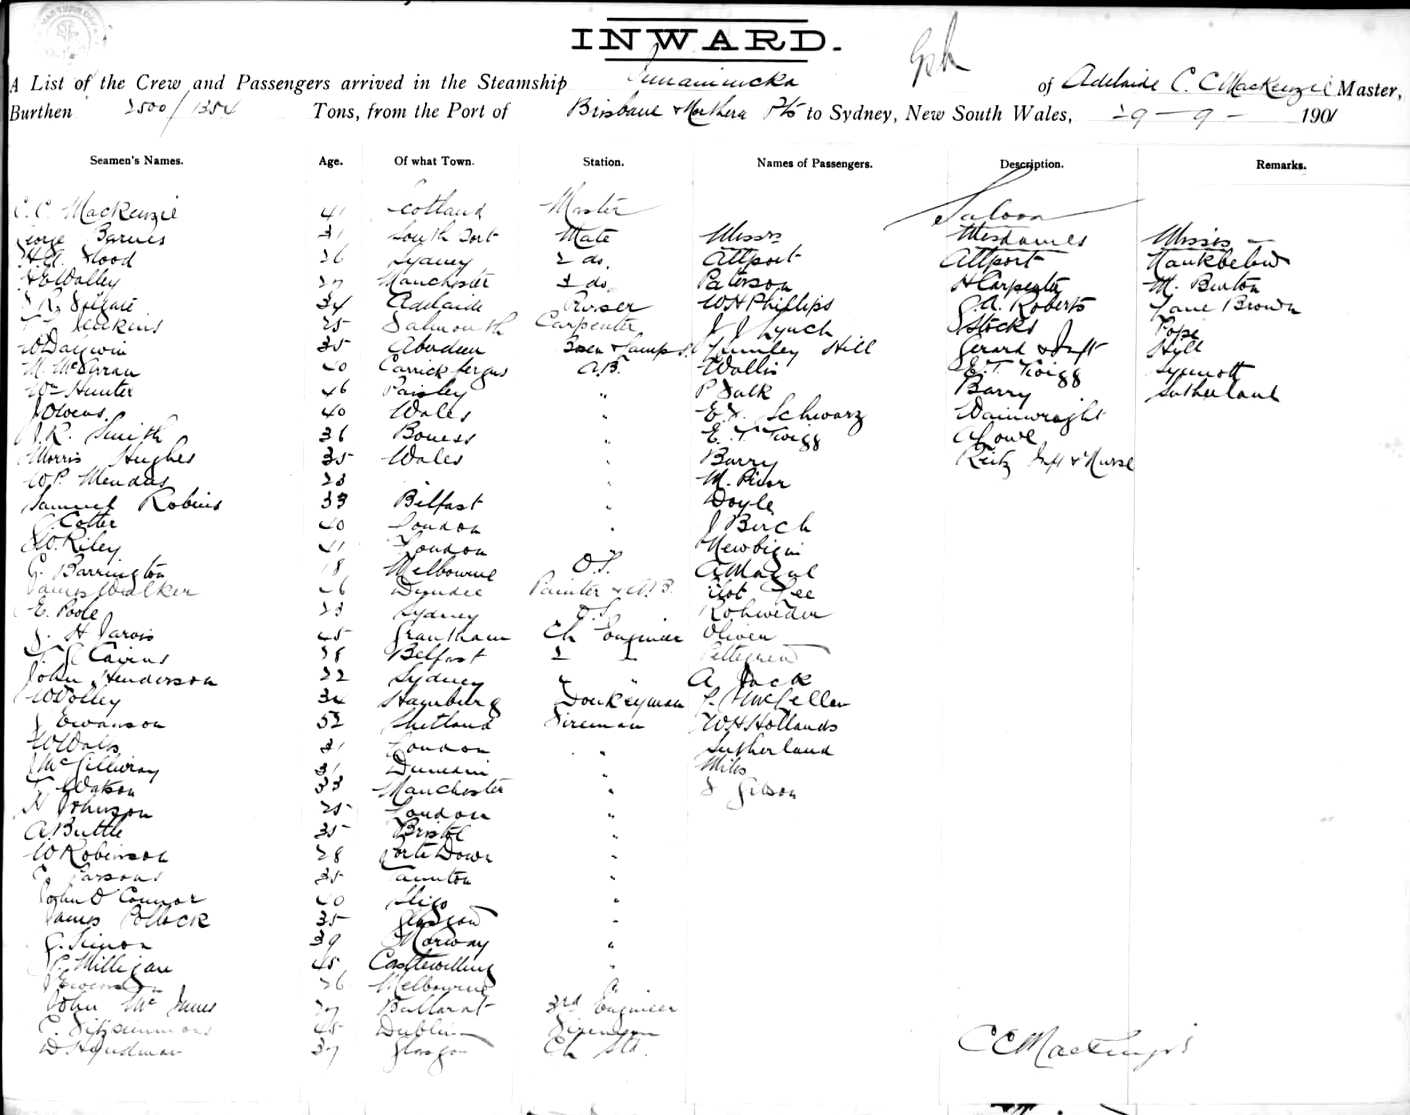 INWARD.
A List of the Crew and Passengers arrived in the Steamship of Adelaide C. C. MacKenzie Master,
Burthen 2500/1354 Tons, from the Port of Brisbane & Northern Pts to Sydney, New South Wales, 29 - 9 - 1901
Seamen's Names. Age. Of what Town. Station. Names of Passengers. Description. Remarks.
C. C. MacKenzie 41 Scotland Master Saloon
George Barnes 31 South Port Mate Messrs Mesdames Misses
H. A. Flood 26 Sydney 2 do. Attport Attport Nankbelow
H E Walley 27 Manchester 3 do. Paterson H Carpenter M. Burton
34 Adelaide Purser W H Phillips G. A. Roberts Jane Brown
Jenkins 25 Carpenter J J Lynch Stocks Pope
35 Aberdeen Bosn & Lamps Lumley Hill Gerard & Inft Hyll
M. 20 Carrickfergus A.B. Wallis E. T. Twigg Synnott
Wm Hunter 46 Paisley " P Falk Barry Sutherland
J Owens 40 Wales " E. F. Schwarz Wainwright
J. R. Smith 36 Boness " E. T. Twigg A Lowe
Morris Hughes 35 Wales " Barry Reitz Inft & Nurse
W. P. Mendus 23 " M. Pivor
Samuel Robins 33 Belfast " Doyle
Cotter 40 London " J Birch
W. Riley 41 London " Newbigin
G. Barrington 18 Melbourne O.S.
James Walker 26 Dundee Painter & A.B. Lee
E. Poole 23 Sydney O.S. Rohweder
J. H Jarvis 45 Grantham Ch Engineer Oliver
Cairns 28 Belfast 2 " Pettegrew
John Henderson 22 Sydney " " A Jack
W Polley 34 Hamburg Donkeyman P. McLellan
J Ewanson 52 Shetland Fireman W H Hollands
W Wales 31 London " Sutherland
McGillivray 31 Dunedin " Miles
T. Watson 33 Manchester " J Gibson
H Johnson 25 London "
A. Buttle 35 Bristol "
W Robinson 28 Porte Down "
C. Parsons 35 Taunton "
John O'Connor 40 Sligo "
James Pollock 35 Glasgow "
G. Simon 39 Norway "
P. Milligan 45 Castlewelling "
26 Melbourne
John McInnes 27 Ballarat 3rd Engineer
C. Fitzsimmons 45 Dublin Fireman
D Hyndman 37 Glasgow Ch Std.
C C MacKenzie